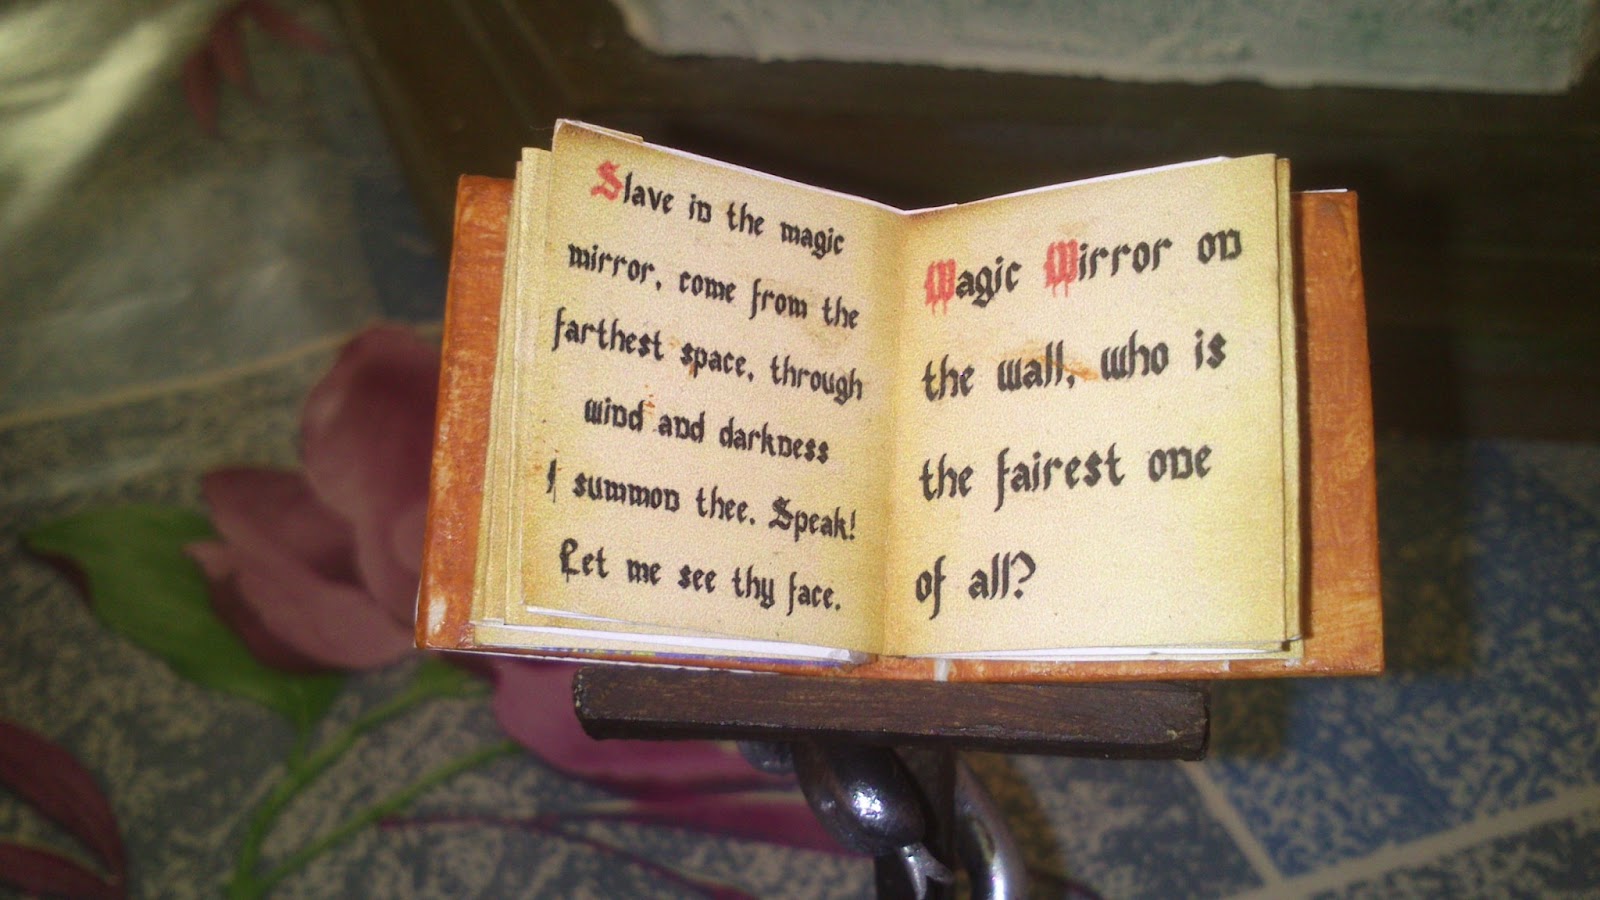 Slave in the magic
mirror, come from the
farthest space, through
wind and darkness
I summon thee. Speak!
Let me see thy face.
Magic Mirror on
the wall, who is
the fairest one
of all?